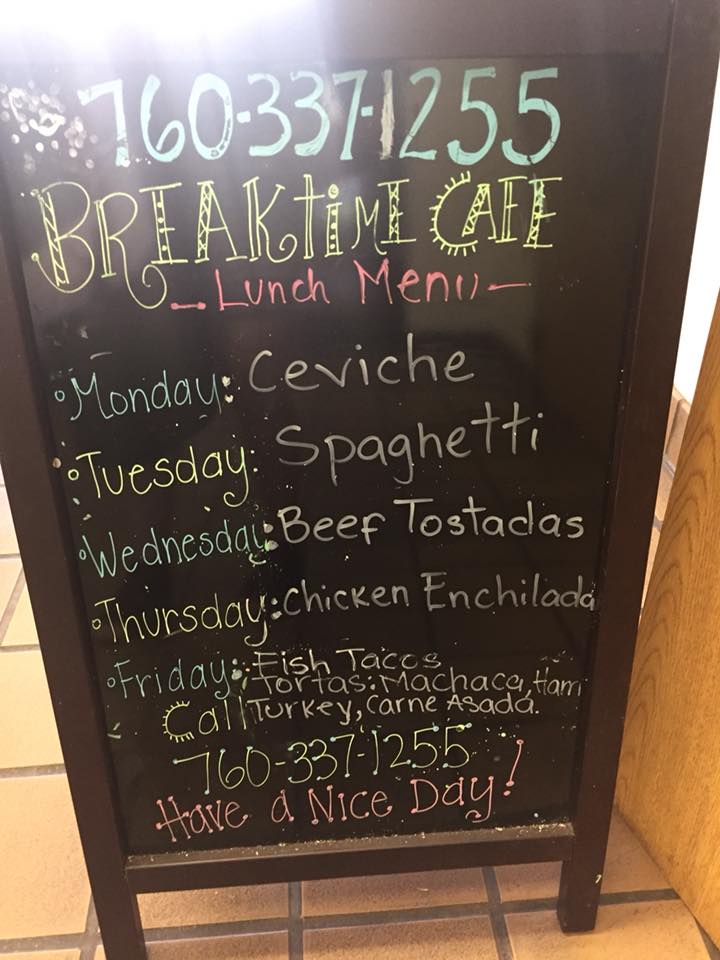 760-337-1255
BREAKTiME CAFE
- Lunch Menu -
Monday: Ceviche
Tuesday: Spaghetti
Wednesday: Beef Tostadas
Thursday: Chicken Enchilada
Friday: Fish Tacos
Tortas: Machaca, Ham
Turkey, Carne Asada.
Call
760-337-1255
Have a Nice Day!